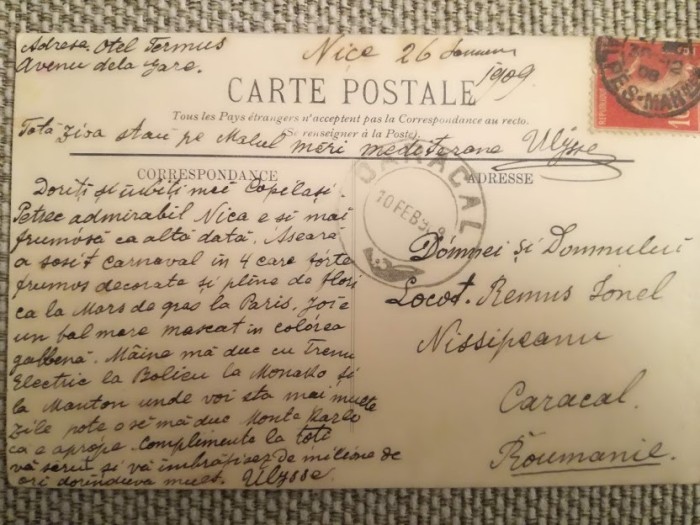 Adresa. Otel Termus
Avenu dela Gare.
Nice 26
1909
CARTE POSTALE
Tous les Pays étrangers n'acceptent pas la Correspondance au recto.
(Se renseigner à la Poste)
Totă ziva stau pe Malul meri mediterane Ulysse
CORRESPONDANCE
ADRESSE
CARACAL
10 FEB
ALPES-MAR
Doriți și iubiți mei Copilași.
Petrec admirabil Nica e și mai
frumósă ca altă dată. Aseară
a sosit carnaval in 4 care forte
frumos decorate și pline de flori
ca la Mars de gras la Paris. Joi e
un bal mare mascat in colórea
galbenă. Mâine mă duc cu Trenu
Electric la Bolieu la Monakko și
la Manton unde voi sta mai multe
zile pote o sĕ mă duc Monte Karlo
ca e aprópe. Complimente la toti
vă serut și vă imbrățișez de milione de
ori dorinduva mult. Ulysse
Dómnei și Domnului
Locot. Remus Ionel
Nissipeanu
Caracal.
Roumanie.